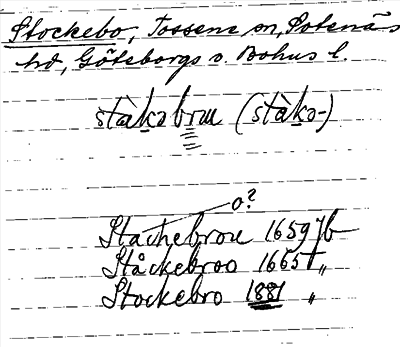 Stockebo, Tossene sn, Sotenäs
hd, Göteborgs o. Bohus l.
stàkəbru (stàkə-)
o?
Stachebroe 1659 Jb
Ståckebroo 1665 "
Stockebro 1881 "